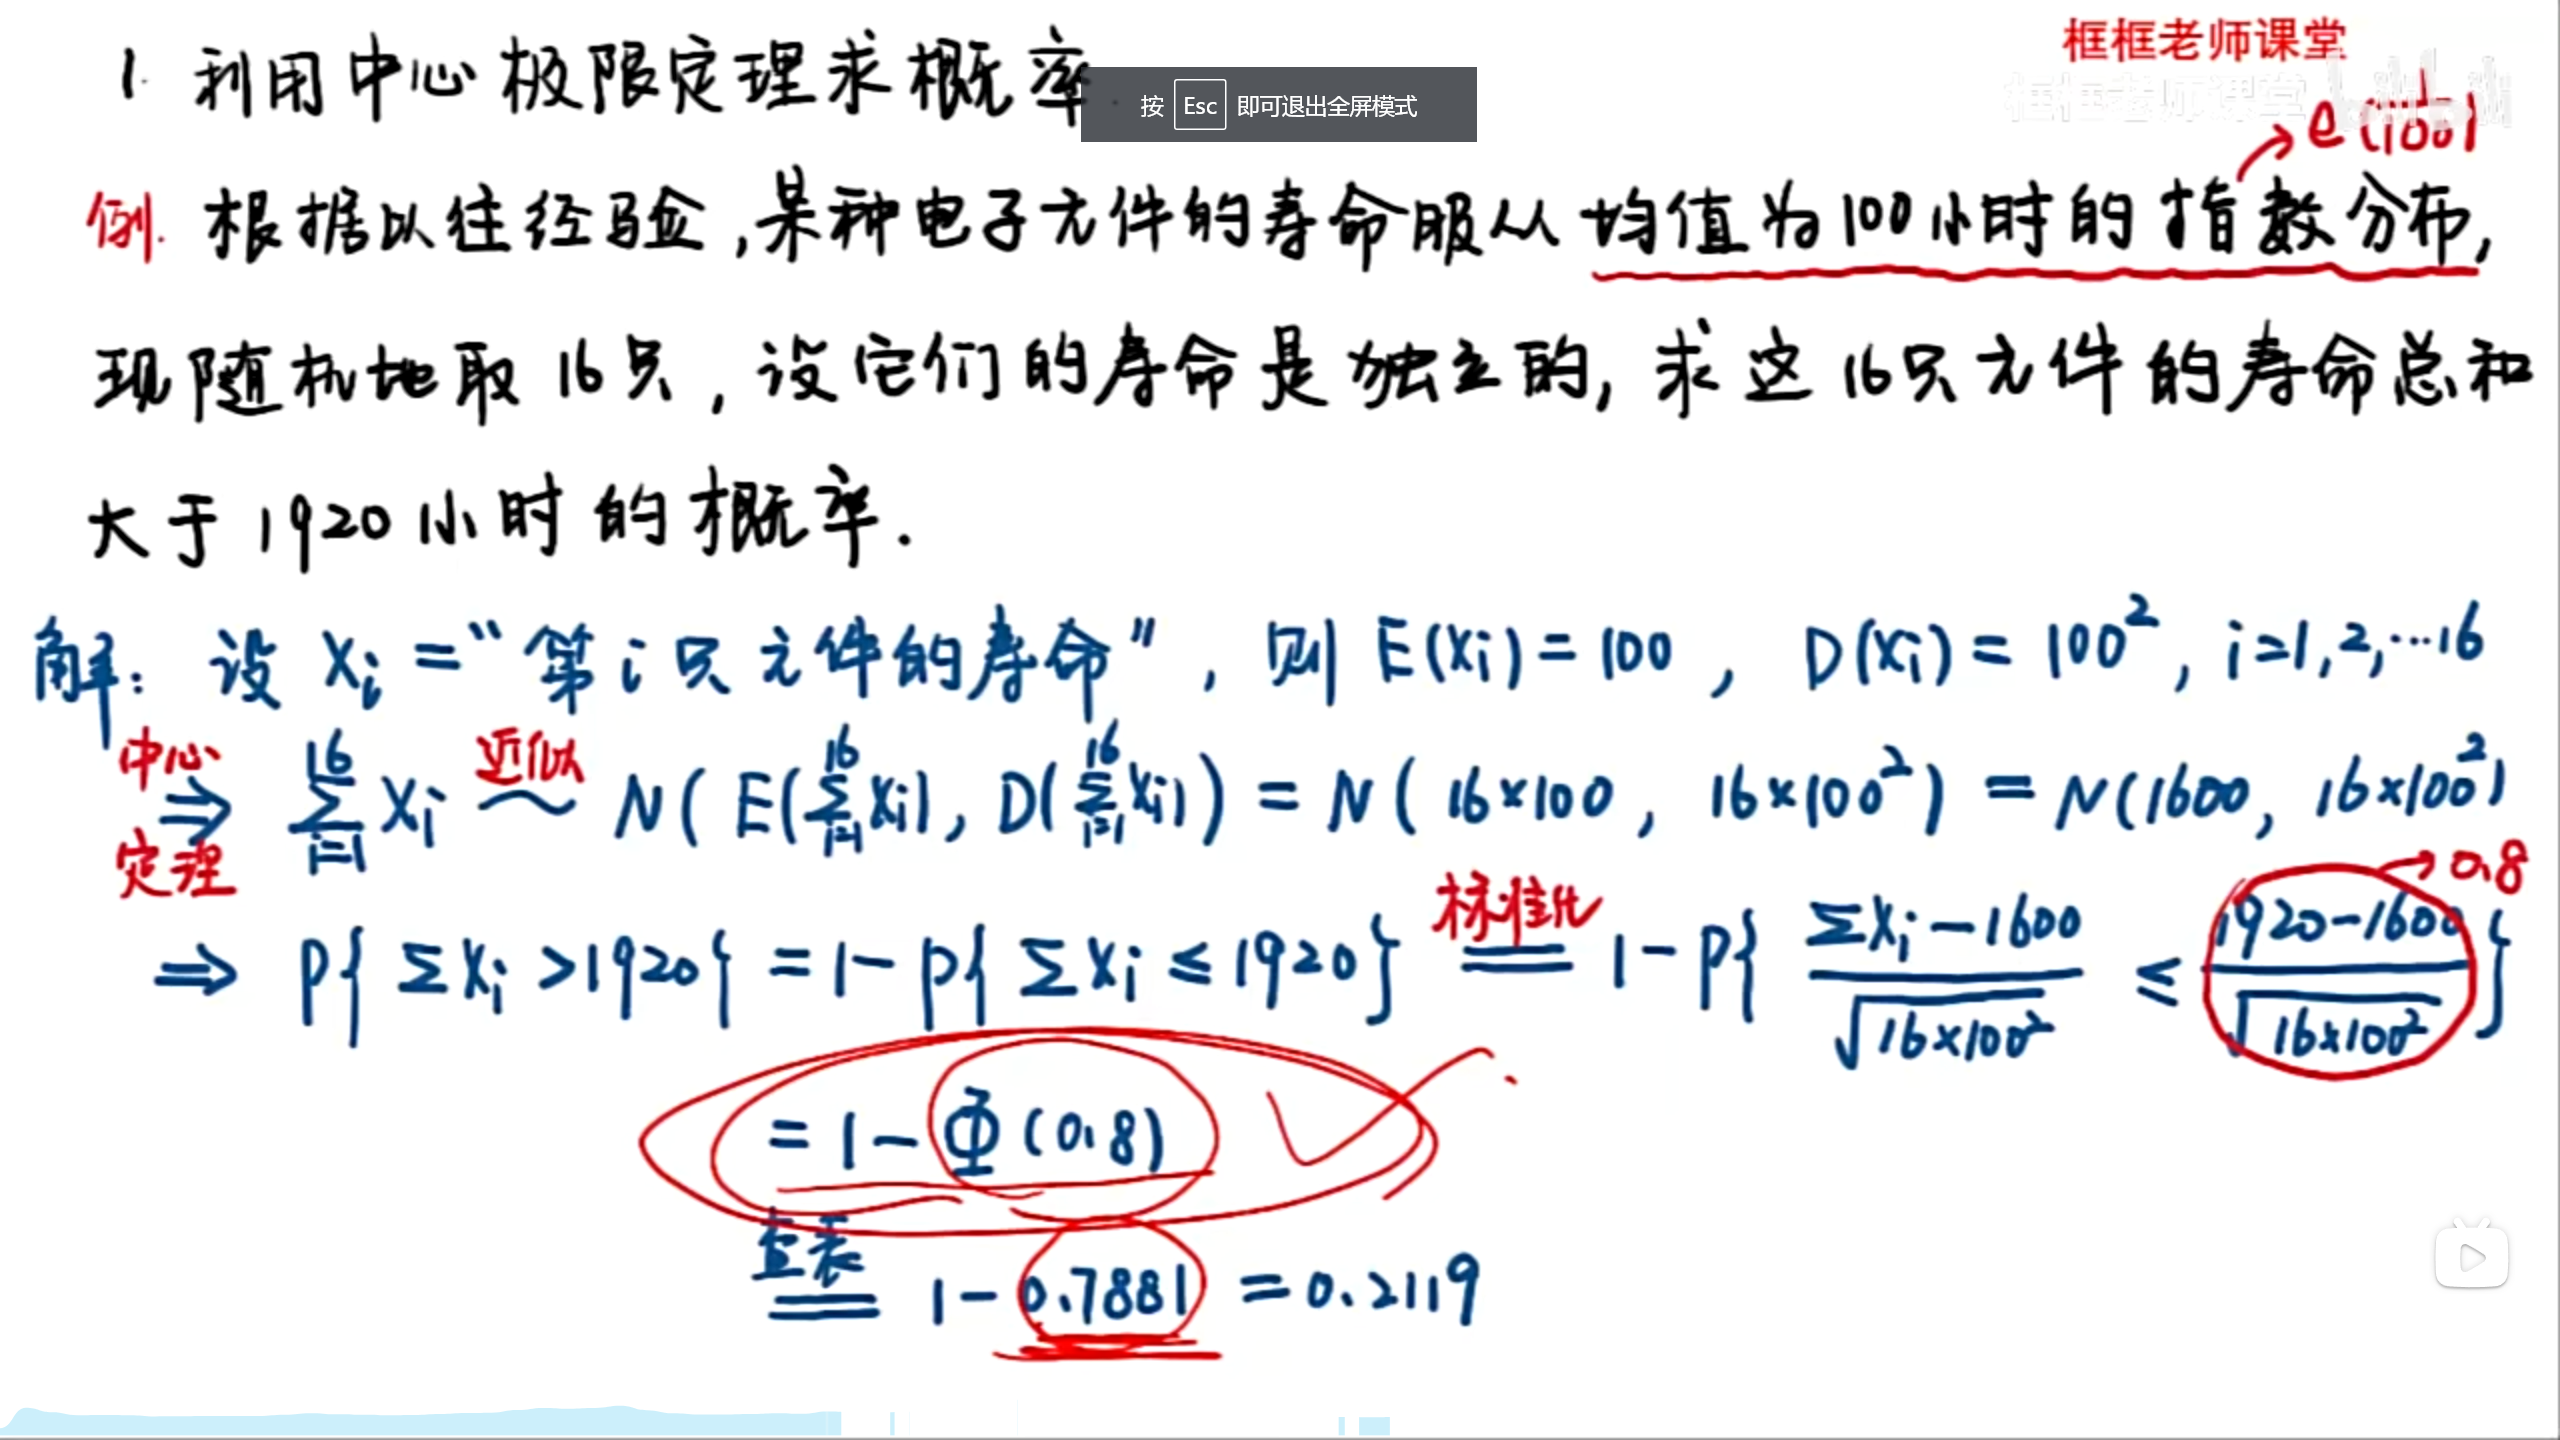 框框老师课堂
1. 利用中心极限定理求概率
按 Esc 即可退出全屏模式
框框老师课堂 bilibili
e(100)
例. 根据以往经验,某种电子元件的寿命服从均值为100小时的指数分布,
现随机地取16只,设它们的寿命是独立的,求这16只元件的寿命总和
大于1920小时的概率.
解: 设 Xi = “第i只元件的寿命”, 则 E(Xi) = 100, D(Xi) = 100², i=1,2,…16
中心定理 ⇒ ∑_{i=1}^{16} Xi 近似~ N( E(∑_{i=1}^{16} Xi), D(∑_{i=1}^{16} Xi) ) = N( 16×100, 16×100² ) = N(1600, 16×100²)
→0.8
⇒ P{ ∑Xi > 1920 } = 1 - P{ ∑Xi ≤ 1920 } 标准化= 1 - P{ (∑Xi - 1600)/√(16×100²) ≤ (1920-1600)/√(16×100²) }
= 1 - Φ(0.8)
查表= 1 - 0.7881 = 0.2119